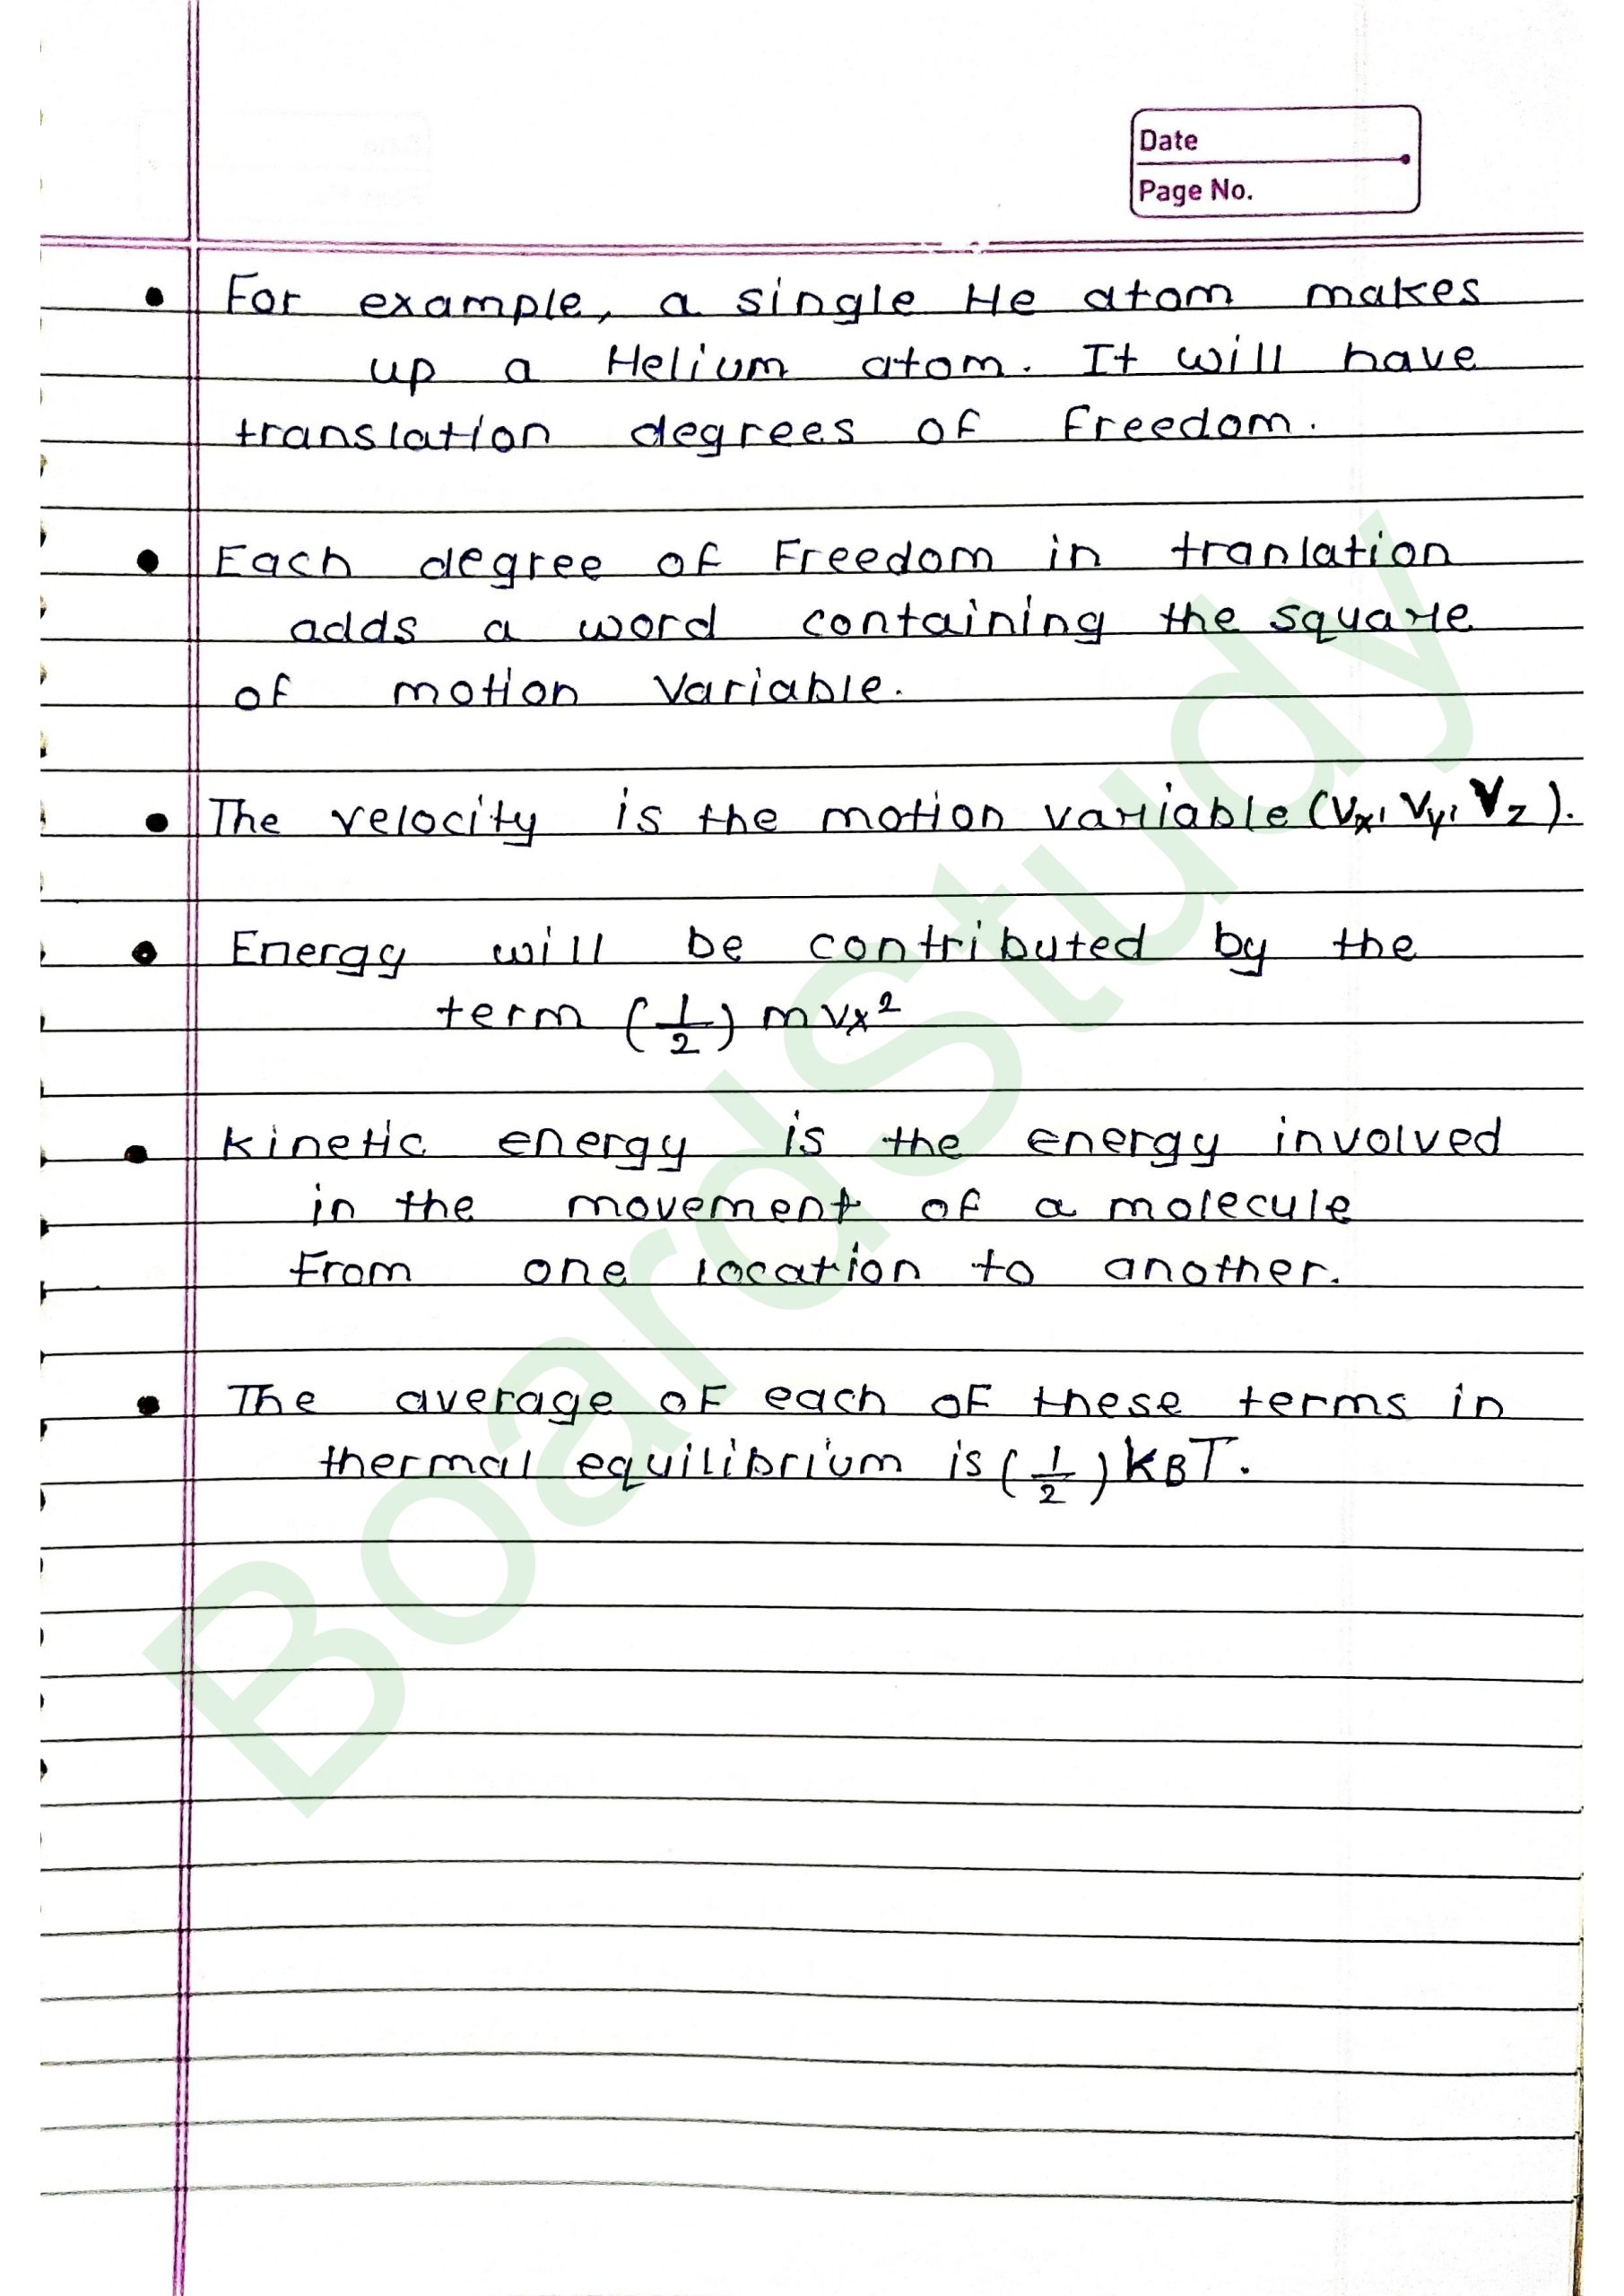 Date
Page No.
• For example, a single He atom makes
up a Helium atom. It will have
translation degrees of freedom.
• Each degree of freedom in tranlation
adds a word containing the square
of motion variable.
• The velocity is the motion variable (Vx, Vy, Vz).
• Energy will be contributed by the
term (1/2) mvx²
• kinetic energy is the energy involved
in the movement of a molecule
from one location to another.
• The average of each of these terms in
thermal equilibrium is (1/2) KBT.
BoardStudy